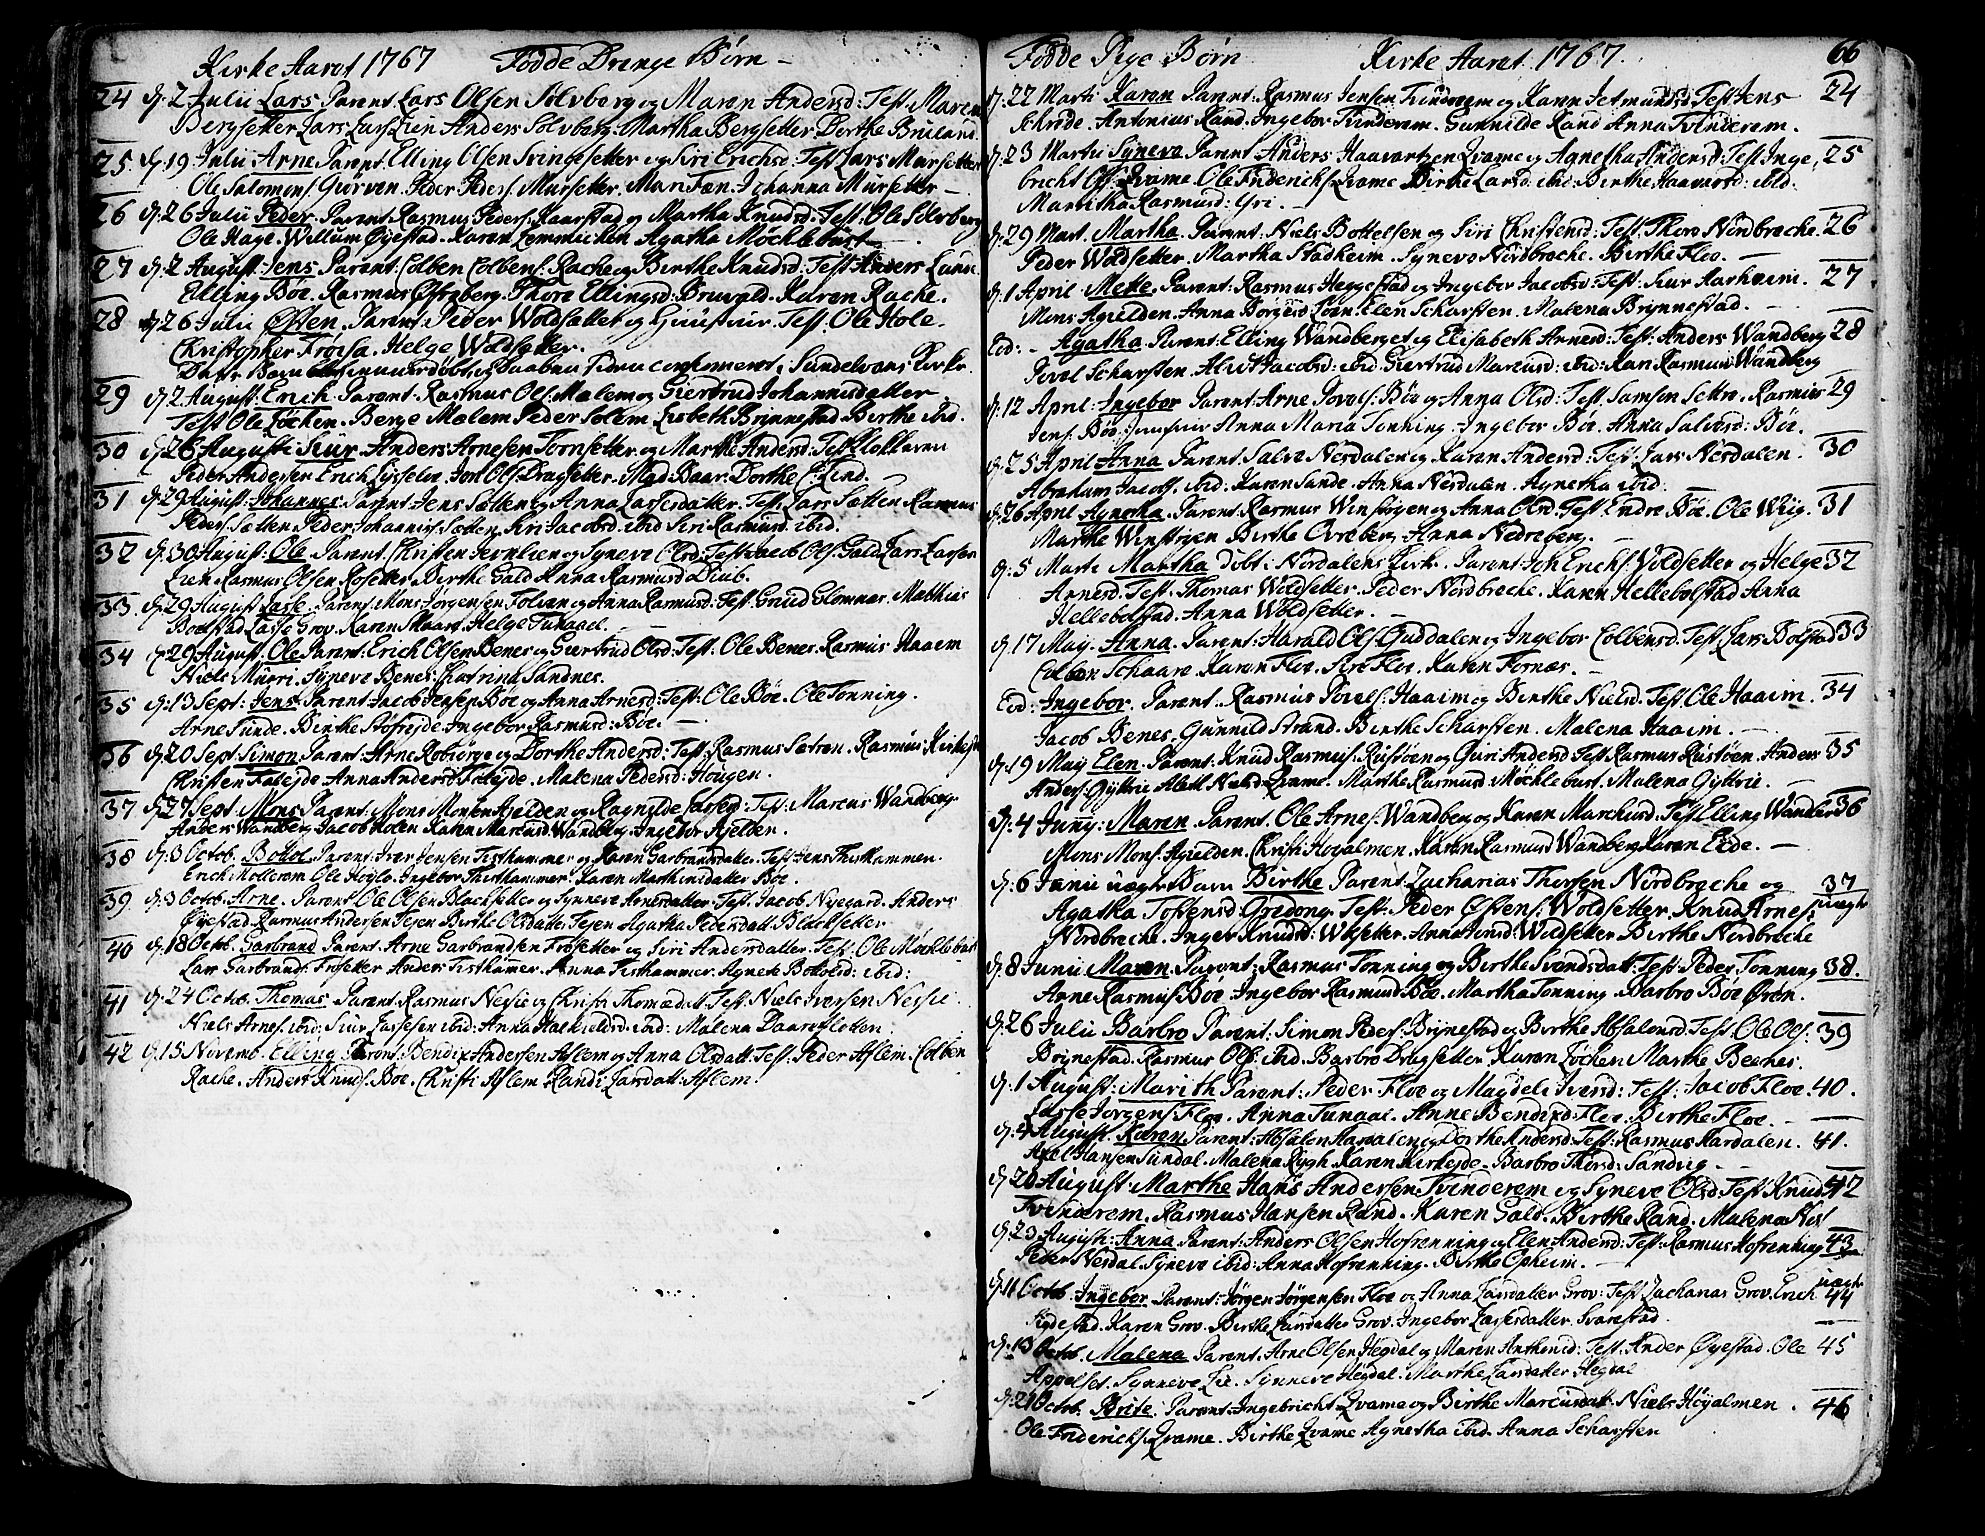 Kirke Aaret 1767 Fødde Drenge Børn
24 d. 2 Julii Lars Parent: Lars Olsen Sølvberg og Maren Andersd: Test: Maren
Bergsetter Lars Larss Lien Anders Sølvberg. Martha Bergsetter Dorthe Bruland
25 d. 19 Julii Arne Parent Elling Olsen Svingesetter og Siri Erichsd: Test Lars Mursetter
Ole Salomons. Giørven. Peder Peders. Mursetter. Mari Fæn. Johanna Mursetter
26 d. 26 Julii Peder. Parent: Rasmus Peders. Kaarstad og Martha Knudsd. Test: Ole Sølvberg
Ole Hage. Willum Øyestad. Karen Lemmichen Agatha Møchlebust
27 d. 2 August: Jens Parent: Colben Colbens. Rache og Birthe Knudsd. Test: Anders Lunn
Elling Bøe. Rasmus Østenberg. Thore Ellingsd: Bruvald. Karen Rache.
28 d. 26 Julii Østen. Parent: Peder Woldsetter og Test. Ole Hole.
Christopher Frøisa. Helge Woldsetter.
29 d. 2 August: Erich Parent: Rasmus Ols. Malem og Giertrud Johannisdatter
Test Ole Løchen. Berge Malem Peder Solem Lisbeth Brynnestad Birthe ibid.
30 d. 26 Augusti Siur Anders Arnesen Tornsetter og Marthe Andersd: Test Klokkeren
Peder Andersen Erich Lyslelie. Jon Ols. Dragsetter. Mad. Daar. Dorthe C. Lind.
31 d. 29 August: Johannes Parent: Jens Sætten og Anna Larsesdatter. Test: Lars Sætten Rasmus
Peders. Sætten Peder Johannis. Sætten Siri Jacobsd ibid Siri Rasmusd ibid.
32 d. 30 August: Ole Parent Christen Jernlien og Syneve Olsd: Test Jacob Ols. Gald Lars Larsen
Lien Rasmus Olsen Rosetter Birthe Gald Anna Rasmusd Diub.
33 d. 29 August Lasse. Parent: Mons Jørgensen Folven og Anna Rasmusd. Test: Gnud Glomnes. Matthias
Bødstad Lasse Grov. Karen Skaare. Helge Tunaael.
34 d. 29 August. Ole Parent: Erich Olsen Benes og Giertrud Olsd: Test: Ole Benes. Rasmus Haaem
Niels Murri. Syneve Benes. Chatrina Sandnes.
35 d. 13 Sept: Jens Parent: Jacob Jensen Bøe og Anna Arnesd: Test: Ole Bøe. Ole Tonning.
Arne Sunde. Birthe Stofreide. Ingebor Rasmusd: Bøe.
36 d. 20 Sept: Simon Parent: Arne Robiørge og Dorthe Andersd: Test: Rasmus Sætren. Rasmus Kirkejde
Christen Faleyde Anna Andersd Faleyde. Malena Pedersd: Hougen.
37 d. 27 Sept Mons Parent: Mons Monsen Ajelden og Ragnilde Larsesd: Test: Marcus Wandberg.
Anders Wandberg. Jacob Holen Karen Marcusd Wandberg. Ingebor Ajelden.
38 d. 3 Octob. Bottol. Parent: Iver Jensen Tisthammer og Karen Garbrandsdatter. Test: Jens Thisthammer.
Erich Mollerem. Ole Høylo. Ingebor Thisthammer. Karen Marthinsdatter Bøe.
39 d. 3 Octob. Arne. Parent Ole Olsen Blacksetter og Synneve Arnesdatter. Test: Jacob Nyegard. Anders
Øyestad Rasmus Andersen Tejen Birthe Olsdatt. Tejen Agatha Pedersdatt. Blacksetter
40 d. 18 Octob. Garbrand Parent. Arne Garbrandsen Frøsetter og Siri Andersdatter. Test: Ole Møchlebust
Lars Garbrands. Frøsetter Anders Tisthammer. Anna Tisthammer. Agnete Bottolsd: ibid:
41 d. 24 Octob. Thomas Parent. Rasmus Nesse og Christi Thomædatt. Test. Niels Iversen Nesse.
Niels Arnes. ibid: Siur Lassesen ibid: Anna Hachieldsd. ibid: Malena Daareflotten.
42 d. 15 Novemb. Elling Parent: Bendix Andersen Aflem og Anna Olsdatt: Test: Peder Aflem. Colben
Rache. Anders Knuds. Bøe. Christi Aflem Randi Larsdatt: Aflem.
Fødde Pige Børn Kirke Aaret 1767. 66
d. 22 Marti Karen Parent: Rasmus Jensen Tvinderem og Karen Jetmundsd. Test: Jens 24
Schrøde. Antonius Rand. Ingebor Tvinderem. Gunnilde Rand Anna Tvinderem.
d. 23 Martii Syneve Parent: Anders Haavartzen Qvame og Agnetha Andersd: Test: Inge, 25
brecht Ols. Qvame Ole Friderichs. Qvame Birthe Larsd: ibid Birthe Haavarsd: ibid.
Maritha Rasmusd: Gri.
d. 29 Mart. Martha. Parent: Niels Bottelsen og Siri Christensd: Test: Thore Nordbreche. 26
Peder Woldsetter. Martha Stadheim. Synevo Nordbreche. Birthe Floe.
d. 1 April Mette. Parent: Rasmus Heggestad og Ingebor Jacobsd: Test: Siur Aarheim. 27
Mons Ajelden. Anna Børgesd Loen. Elen Scharsten. Malena Brynnestad.
Eod: Agatha. Parent: Elling Wandberget og Elisabeth Arnesd: Test: Anders Wandberg 28
Povel Scharsten. Alit Jacobsd: ibid Giertrud Marcusd: ibid: Kari Rasmusd Wandberg
d. 12 April. Ingebor Parent: Arne Povels. Bøe og Anna Olsd: Test. Samson Settre. Rasmus 29
Jens. Bøe. Anna Maria Tonning. Ingebor Bøe. Anna Salvesd: Bøe.
d. 25 April Anna Parent: Salve Nerdalen og Karen Andersd: Test: Lars Nerdalen. 30
Abraham Jacobs. ibid: Karen Sande. Anna Nerdalen. Agnetha ibid.
d. 26 April Agnetha Parent: Rasmus Winsrygen og Anna Olsd. Test: Endre Bøe. Ole Wiig. 31
Marthe Winsrygen Birthe Ovreberg Anna Nedreberg.
d. 5 Marti Martha døbt i Nordalens Kirke. Parent: Joh Erichs. Woldsetter og Helge 32
Arnesd. Test: Thomas Woldsetter. Peder Nordbreche. Karen Hellebolstad Anna
Hellebolstad. Anna Woldsetter.
d. 17 May. Anna. Parent: Harald Ols. Guddalen og Ingebor Colbensd: Test: Lars Bolstad 33
Colben Schaare. Karen Floe. Siri Floe. Karen Fornæs.
Eod: Ingebor. Parent: Rasmus Povels. Haaim og Birthe Nielsd. Test: Ole Haaim. 34
Jacob Benes. Gunnild Strand. Birthe Scharsten. Malena Haaim.
d. 19 May Elen. Parent: Knud Rasmus. Rustøen og Guri Andersd. Test Rasmus Rustøen. Anders 35
Anders. Gyttrie Aleth Nielsd Qvame. Marthe Rasmusd: Møchlebust. Malena Gyttrie.
d. 4 Junij: Maren. Parent: Ole Arnes. Wandberg og Karen Marchusd. Test Elling Wandberg 36
Mons Mons. Ajelden. Christi Høyalmen. Karen Rasmusd Wandberg Karen Eide.
d. 6 Junii uægte Barn Birthe Parent: Zacharias Thorsen Nordbreche og 37
Agatha Tostensd Gredong. Test: Peder Østens. Woldsetter. Knud Arnes. uægte
Nordbreche. Inger Knudsd: Wolsetter. Anna Jensd: Woldsetter Birthe Nordbreche
d. 8 Junii Maren. Parent: Rasmus Tonning og Birthe Svendsdatt: Test: Peder Tonning 38.
Arne Rasmus. Bøe. Ingebor Rasmusd Bøe. Martha Tonning. Barbro Bøe Øren.
d. 26 Julii Barbro Parent: Simon Peders. Brynestad og Birthe Absalonsd. Test: Ole Ols. 39
Brynestad. Rasmus Ols. ibid. Barbro Dragsetter Karen Løchen Marthe Beches.
d. 1 August: Marith Parent: Peder Floe og Magdeli Iversd: Test: Jacob Floe. 40.
Lasse Jørgens. Floe. Anna Tunaal. Anne Bendixd. Floe. Birthe Floe.
d. 4 August. Karen Parent: Absalon Hardalen og Dorthe Andersd: Test: Rasmus Hardalen. 41.
Axel Hansen Sundal. Malena Rygh. Karen Kirkejde. Barbro Thorsd: Sandvig
d. 20 August. Marthe Hans Andersen Tvinderem og Syneve Olsd. Test: Knud 42
Tvinderem. Rasmus Hansen Rand. Karen Gald. Birthe Rand. Malena Nes
d. 23 August: Anna Parent: Anders Olsen Hofrenning og Elen Andersd: Test: Rasmus Hofrenning 43
Peder Nesdal. Syneve ibid: Anna Hofrenning. Birthe Opheim. uægte
d. 11 Octob. Ingebor Parent: Jørgen Jørgensen Floe og Anna Larsdatter Grov: Test Zacharias Grov. Erich 44
Fiedestad. Karen Grov. Birthe Larsdatter Grov. Ingebor Lassesdatter. Svarestad.
d. 13 Octob. Malena Parent. Arne Olsen Hegdal og Maren Anthonid: Test: Ander Øyestad. Ole 45
Appelset. Synneve Lie. Synneve Hegdal. Marthe Larsdatter Hegdal
d. 21 Octob. Brite. Parent: Ingebricht Qvame og Birthe Marcusdatt. Niels Høyalmen. 46
Ole Friderichs. Qvame. Birthe Qvame Agnetha ibid. Anna Scharsten